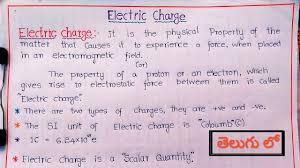 Electric Charge
Electric Charge: It is the physical Property of the
matter that causes it to experience a force, when placed
in an electromagnetic field.
(or)
The property of a proton or an electron, which
gives rise to electrostatic force between them is called
"Electric charge".
* There are two types of charges, they are +ve and -ve.
* The SI unit of Electric charge is "Coloumb"(C).
* 1C = 6.24×10¹⁸ e
* Electric charge is a "Scalar Quantity"
తెలుగు లో